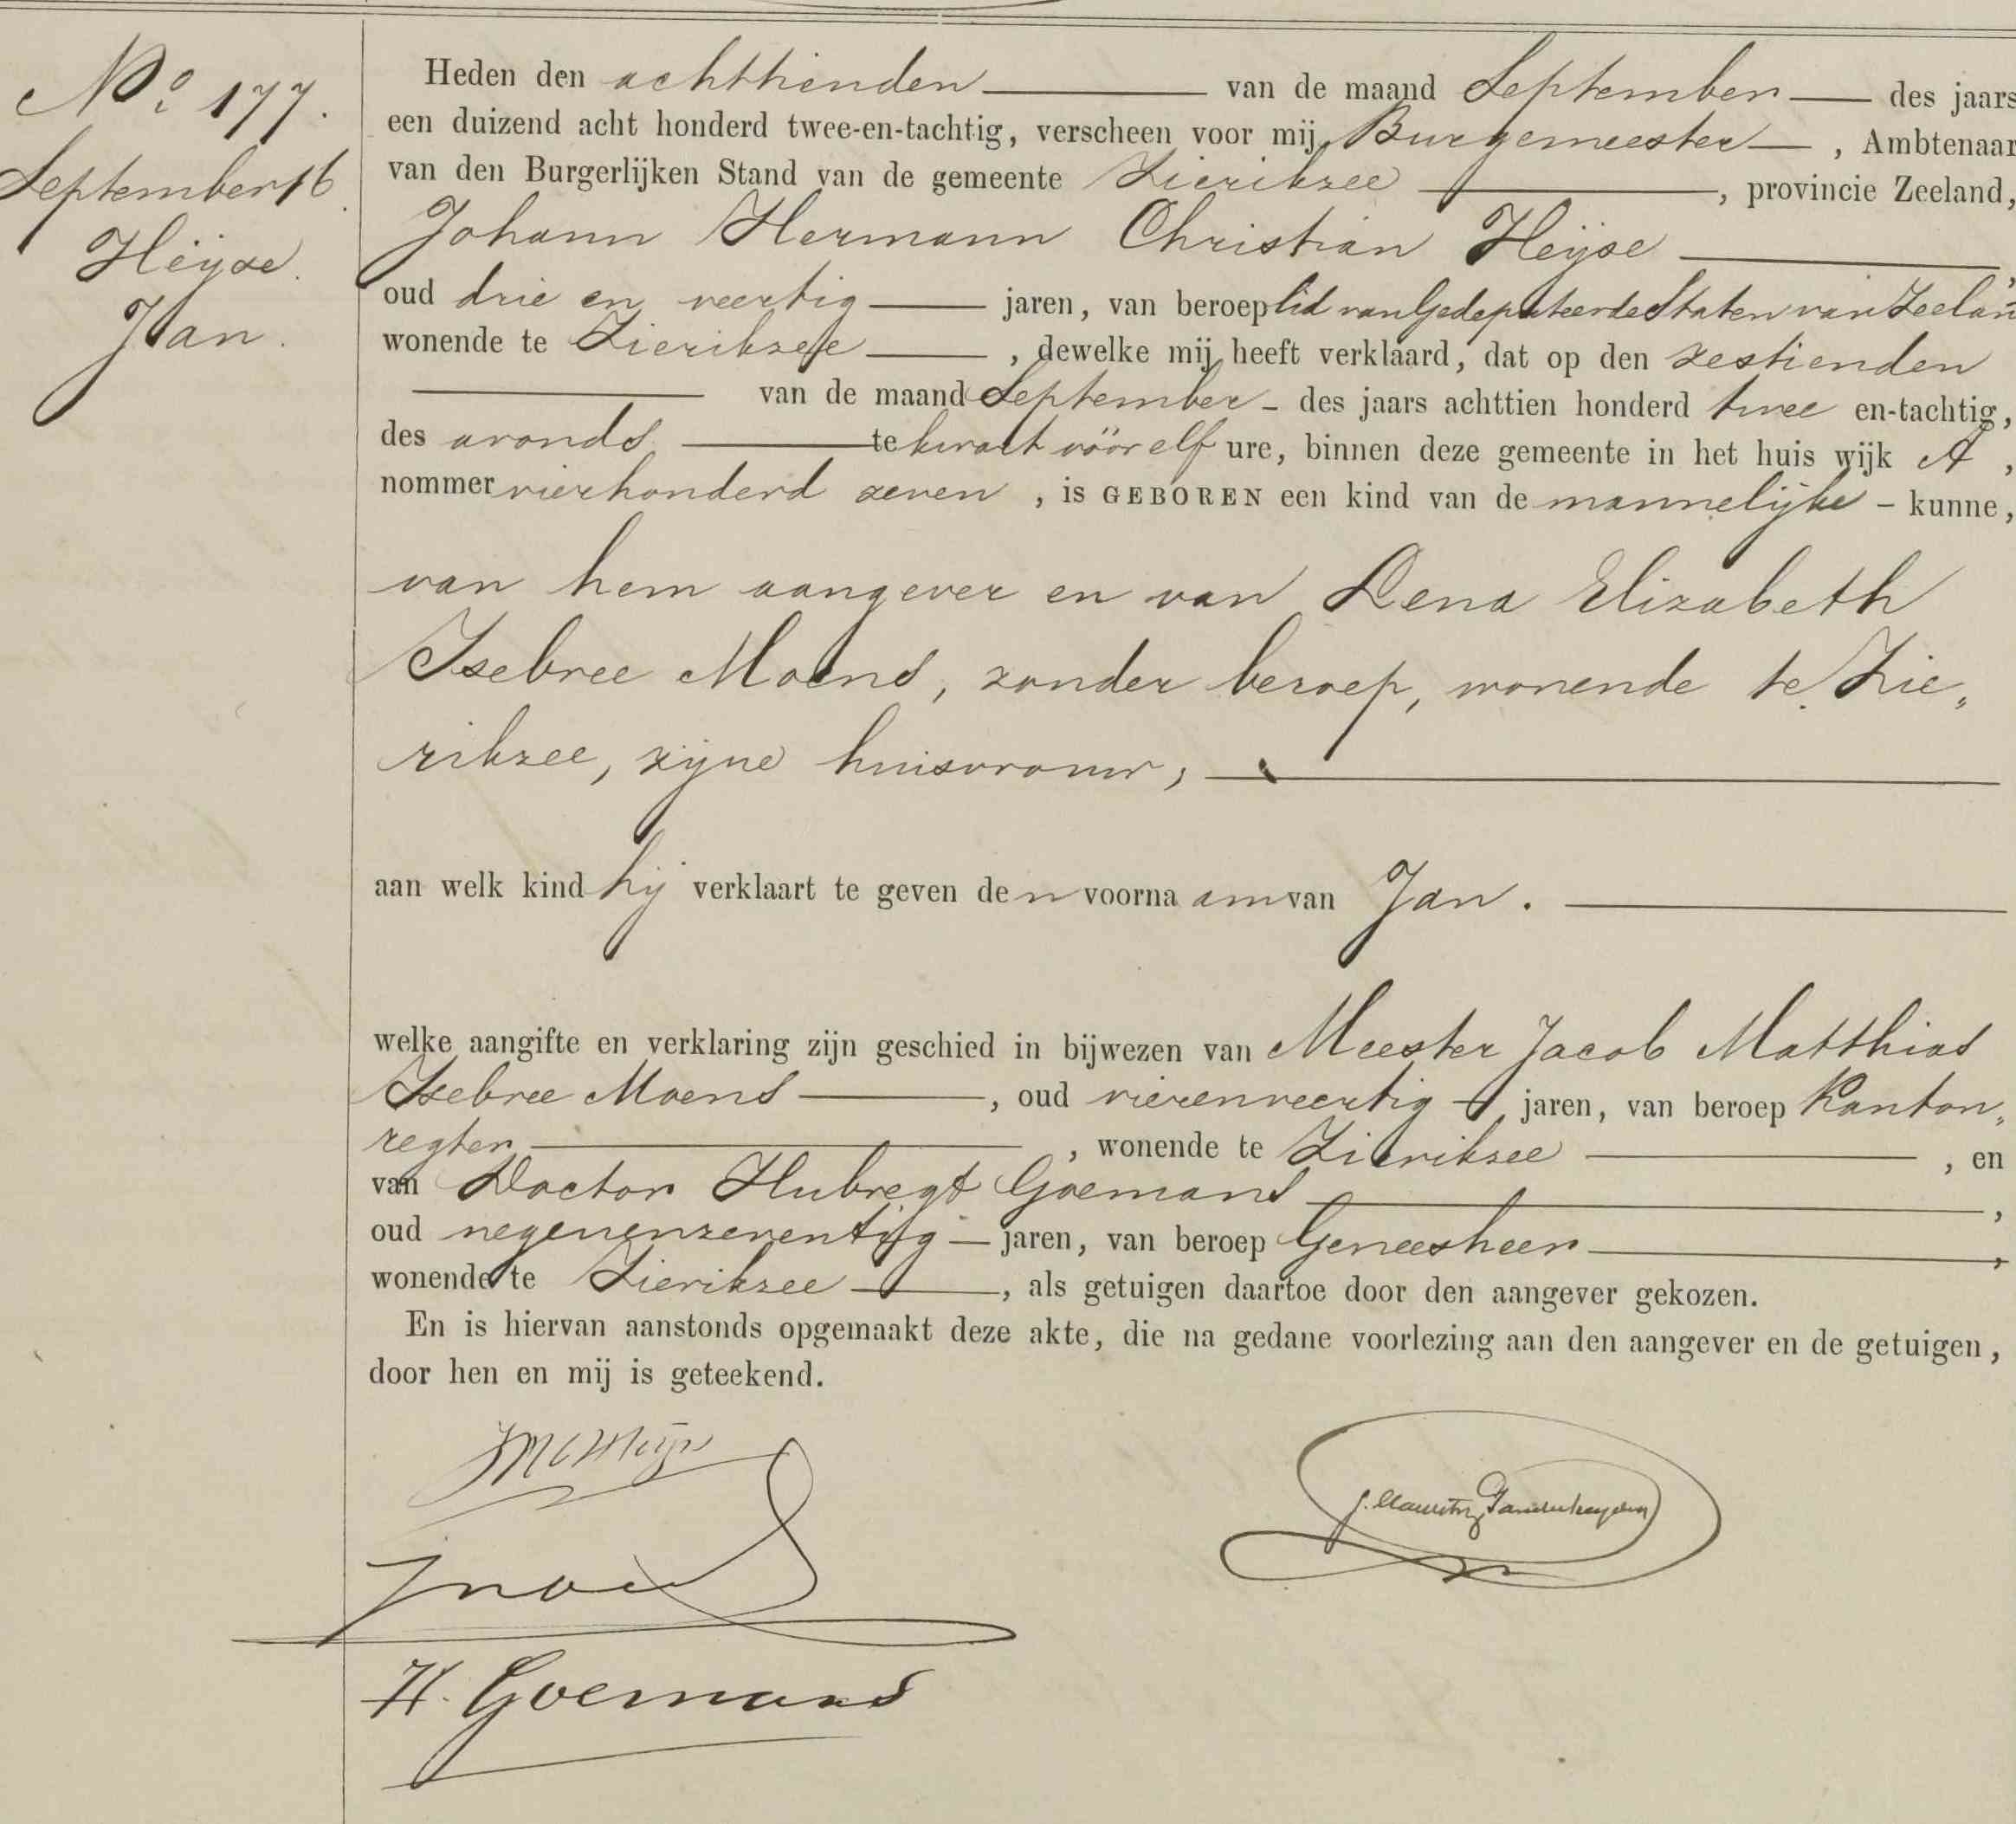 No 177.
September 16.
Heijse.
Jan.
Heden den achttienden van de maand September des jaars
een duizend acht honderd twee-en-tachtig, verscheen voor mij, Burgemeester, Ambtenaar
van den Burgerlijken Stand van de gemeente Zierikzee, provincie Zeeland,
Johann Hermann Christian Heijse,
oud drie en veertig jaren, van beroep lid van Gedeputeerde Staten van Zeeland
wonende te Zierikzee, dewelke mij heeft verklaard, dat op den zestienden
van de maand September - des jaars achttien honderd twee en-tachtig,
des avonds te kwart vóór elf ure, binnen deze gemeente in het huis wijk A,
nommer vierhonderd zeven, is GEBOREN een kind van de mannelijke - kunne,
van hem aangever en van Lena Elizabeth
Isebree Moens, zonder beroep, wonende te Zie„
rikzee, zijne huisvrouw,
aan welk kind hij verklaart te geven den voornaam van Jan.
welke aangifte en verklaring zijn geschied in bijwezen van Meester Jacob Matthias
Isebree Moens, oud vierenveertig jaren, van beroep Kanton„
regter, wonende te Zierikzee, en
van Doctor Hubregt Goemans,
oud negenenzeventig jaren, van beroep Geneesheer,
wonende te Zierikzee, als getuigen daartoe door den aangever gekozen.
En is hiervan aanstonds opgemaakt deze akte, die na gedane voorlezing aan den aangever en de getuigen,
door hen en mij is geteekend.
H. Goemans